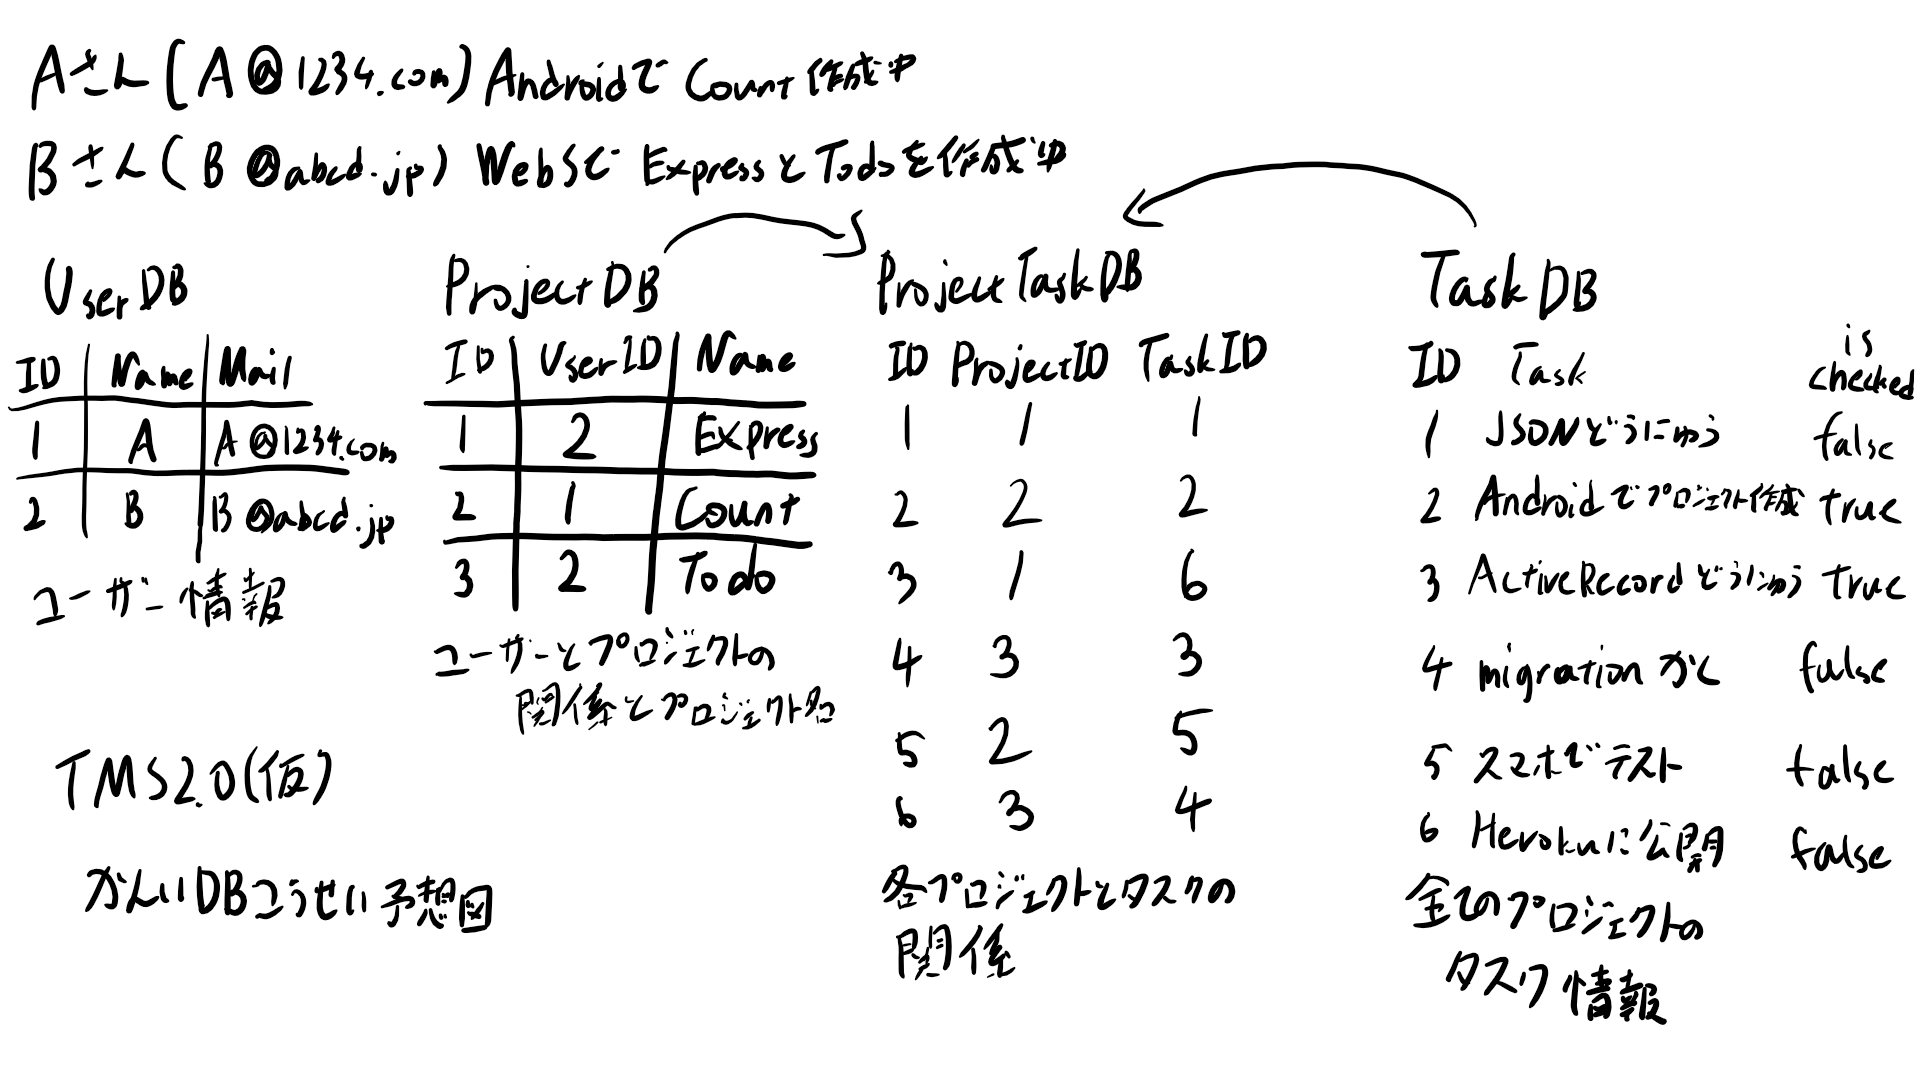 Aさん(A@1234.com) AndroidでCount作成中
Bさん(B@abcd.jp) WebSでExpressとTodoを作成中
UserDB
ID Name Mail
1 A A@1234.com
2 B B@abcd.jp
ユーザー情報
ProjectDB
ID UserID Name
1 2 Express
2 1 Count
3 2 Todo
ユーザーとプロジェクトの
関係とプロジェクト名
ProjectTaskDB
ID ProjectID TaskID
1 1 1
2 2 2
3 1 6
4 3 3
5 2 5
6 3 4
各プロジェクトとタスクの
関係
TaskDB
ID Task is checked
1 JSONどうにゅう false
2 Androidでプロジェクト作成 true
3 ActiveRecordどうにゅう true
4 migrationかく false
5 スマホでテスト false
6 Herokuに公開 false
全てのプロジェクトの
タスク情報
TMS2.0(仮)
かんいDBこうせい予想図